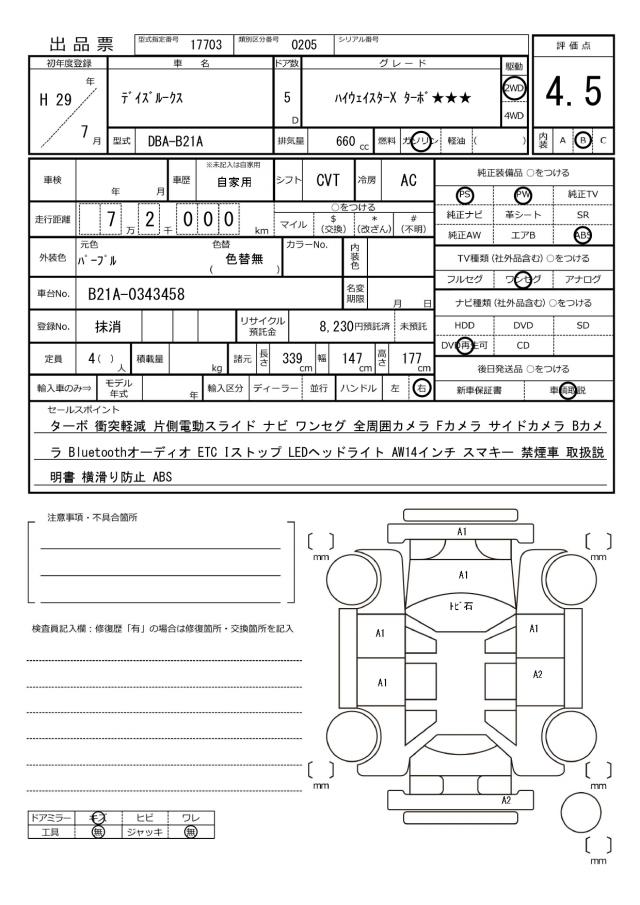 出品票 型式指定番号 17703 類別区分番号 0205 シリアル番号 評価点
初年度登録 車名 ドア数 グレード 駆動
H 29 年 7 月 デイズルークス 5 D ハイウェイスターX ターボ★★★ 2WD 4WD 4.5
型式 DBA-B21A 排気量 660 cc 燃料 ガソリン 軽油 ( ) 内装 A B C
車検 年 月 車歴 ※未記入は自家用 自家用 シフト CVT 冷房 AC 純正装備品 ○をつける
PS PW 純正TV
走行距離 7 万 2 千 0 0 0 km ○をつける
マイル $(交換) *(改ざん) #(不明)
純正ナビ 革シート SR
純正AW エアB ABS
外装色 元色 パープル 色替 ( 色替無 ) カラーNo. 内装色
TV種類 (社外品含む) ○をつける
フルセグ ワンセグ アナログ
車台No. B21A-0343458 名変期限 月 日
ナビ種類 (社外品含む) ○をつける
登録No. 抹消 リサイクル預託金 8,230円預託済 未預託
HDD DVD SD
DVD再生可 CD
定員 4( )人 積載量 kg 諸元 長さ 339 cm 幅 147 cm 高さ 177 cm
後日発送品 ○をつける
輸入車のみ⇒ モデル年式 年 輸入区分 ディーラー 並行 ハンドル 左 右
新車保証書 車輌取説
セールスポイント
ターボ 衝突軽減 片側電動スライド ナビ ワンセグ 全周囲カメラ Fカメラ サイドカメラ Bカメ
ラ Bluetoothオーディオ ETC Iストップ LEDヘッドライト AW14インチ スマキー 禁煙車 取扱説
明書 横滑り防止 ABS
注意事項・不具合箇所
A1
( ) mm ( ) mm
A1
トビ石
検査員記入欄：修復歴「有」の場合は修復箇所・交換箇所を記入
A1 A1
A1 A2
( ) mm ( ) mm
A2
ドアミラー キズ ヒビ ワレ
工具 無 ジャッキ 無
( ) mm